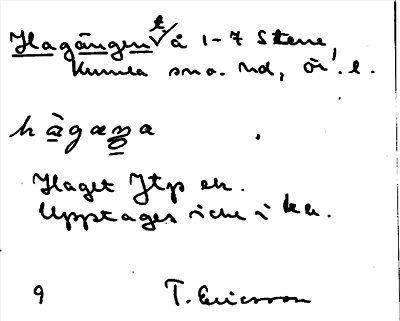 t.
Hagängen å 1-7 Stene,
Kumla sn o. hd, ör. l.
hàgæna
Haget Jtp ek.
Upptages icke i kk.
9
T. Ericsson